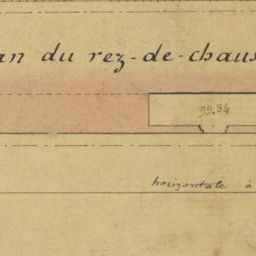 an du rez-de-chaus
29.94
horizontale à